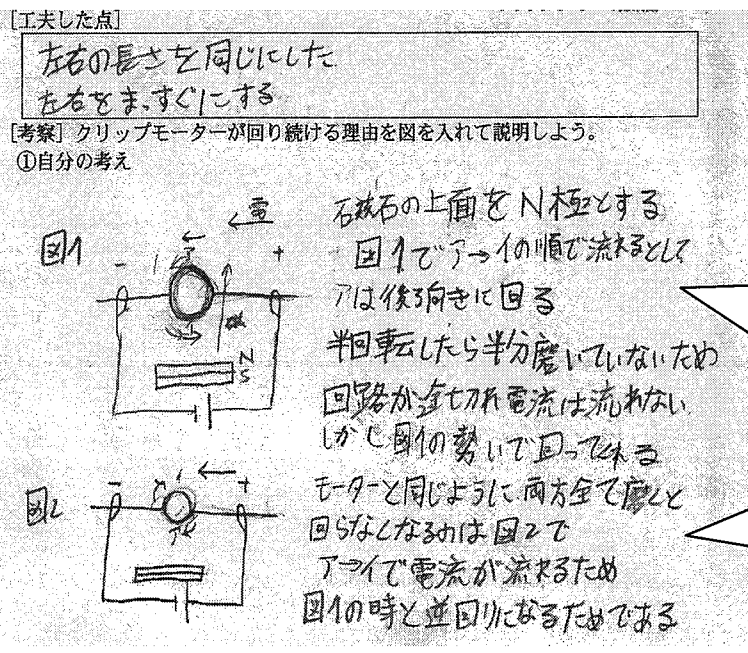 [工夫した点]
左右の長さを同じにした
左右をまっすぐにする
[考察] クリップモーターが回り続ける理由を図を入れて説明しよう。
①自分の考え
図1
電
ア
イ
- +
N
S
磁石の上面をN極とする
図1でア→イの順で流れるとして
アは後ろ向きに回る
半回転したら半分磨いていないため
回路が途切れ電流は流れない
しかし図1の勢いで回ってくれる
図2
- +
イ
ア
モーターと同じように両方全て磨くと
回らなくなるのは図2で
ア→イで電流が流れるため
図1の時と逆回りになるためである